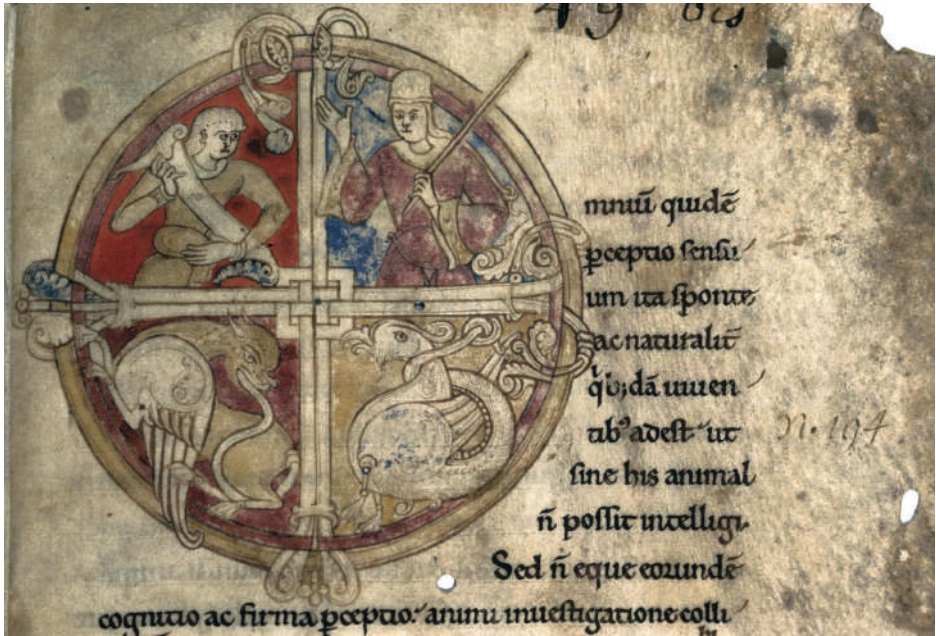 49 bis
mniū quidē
pceptio sensu
um ita sponte
ac naturalit
qb;dā uiuen
tib⁹ adest ut
sine his animal
n. 194
n̄ possit intelligi.
Sed n̄ eque eorundē
cognitio ac firma pceptio. animi inuestigatione colli